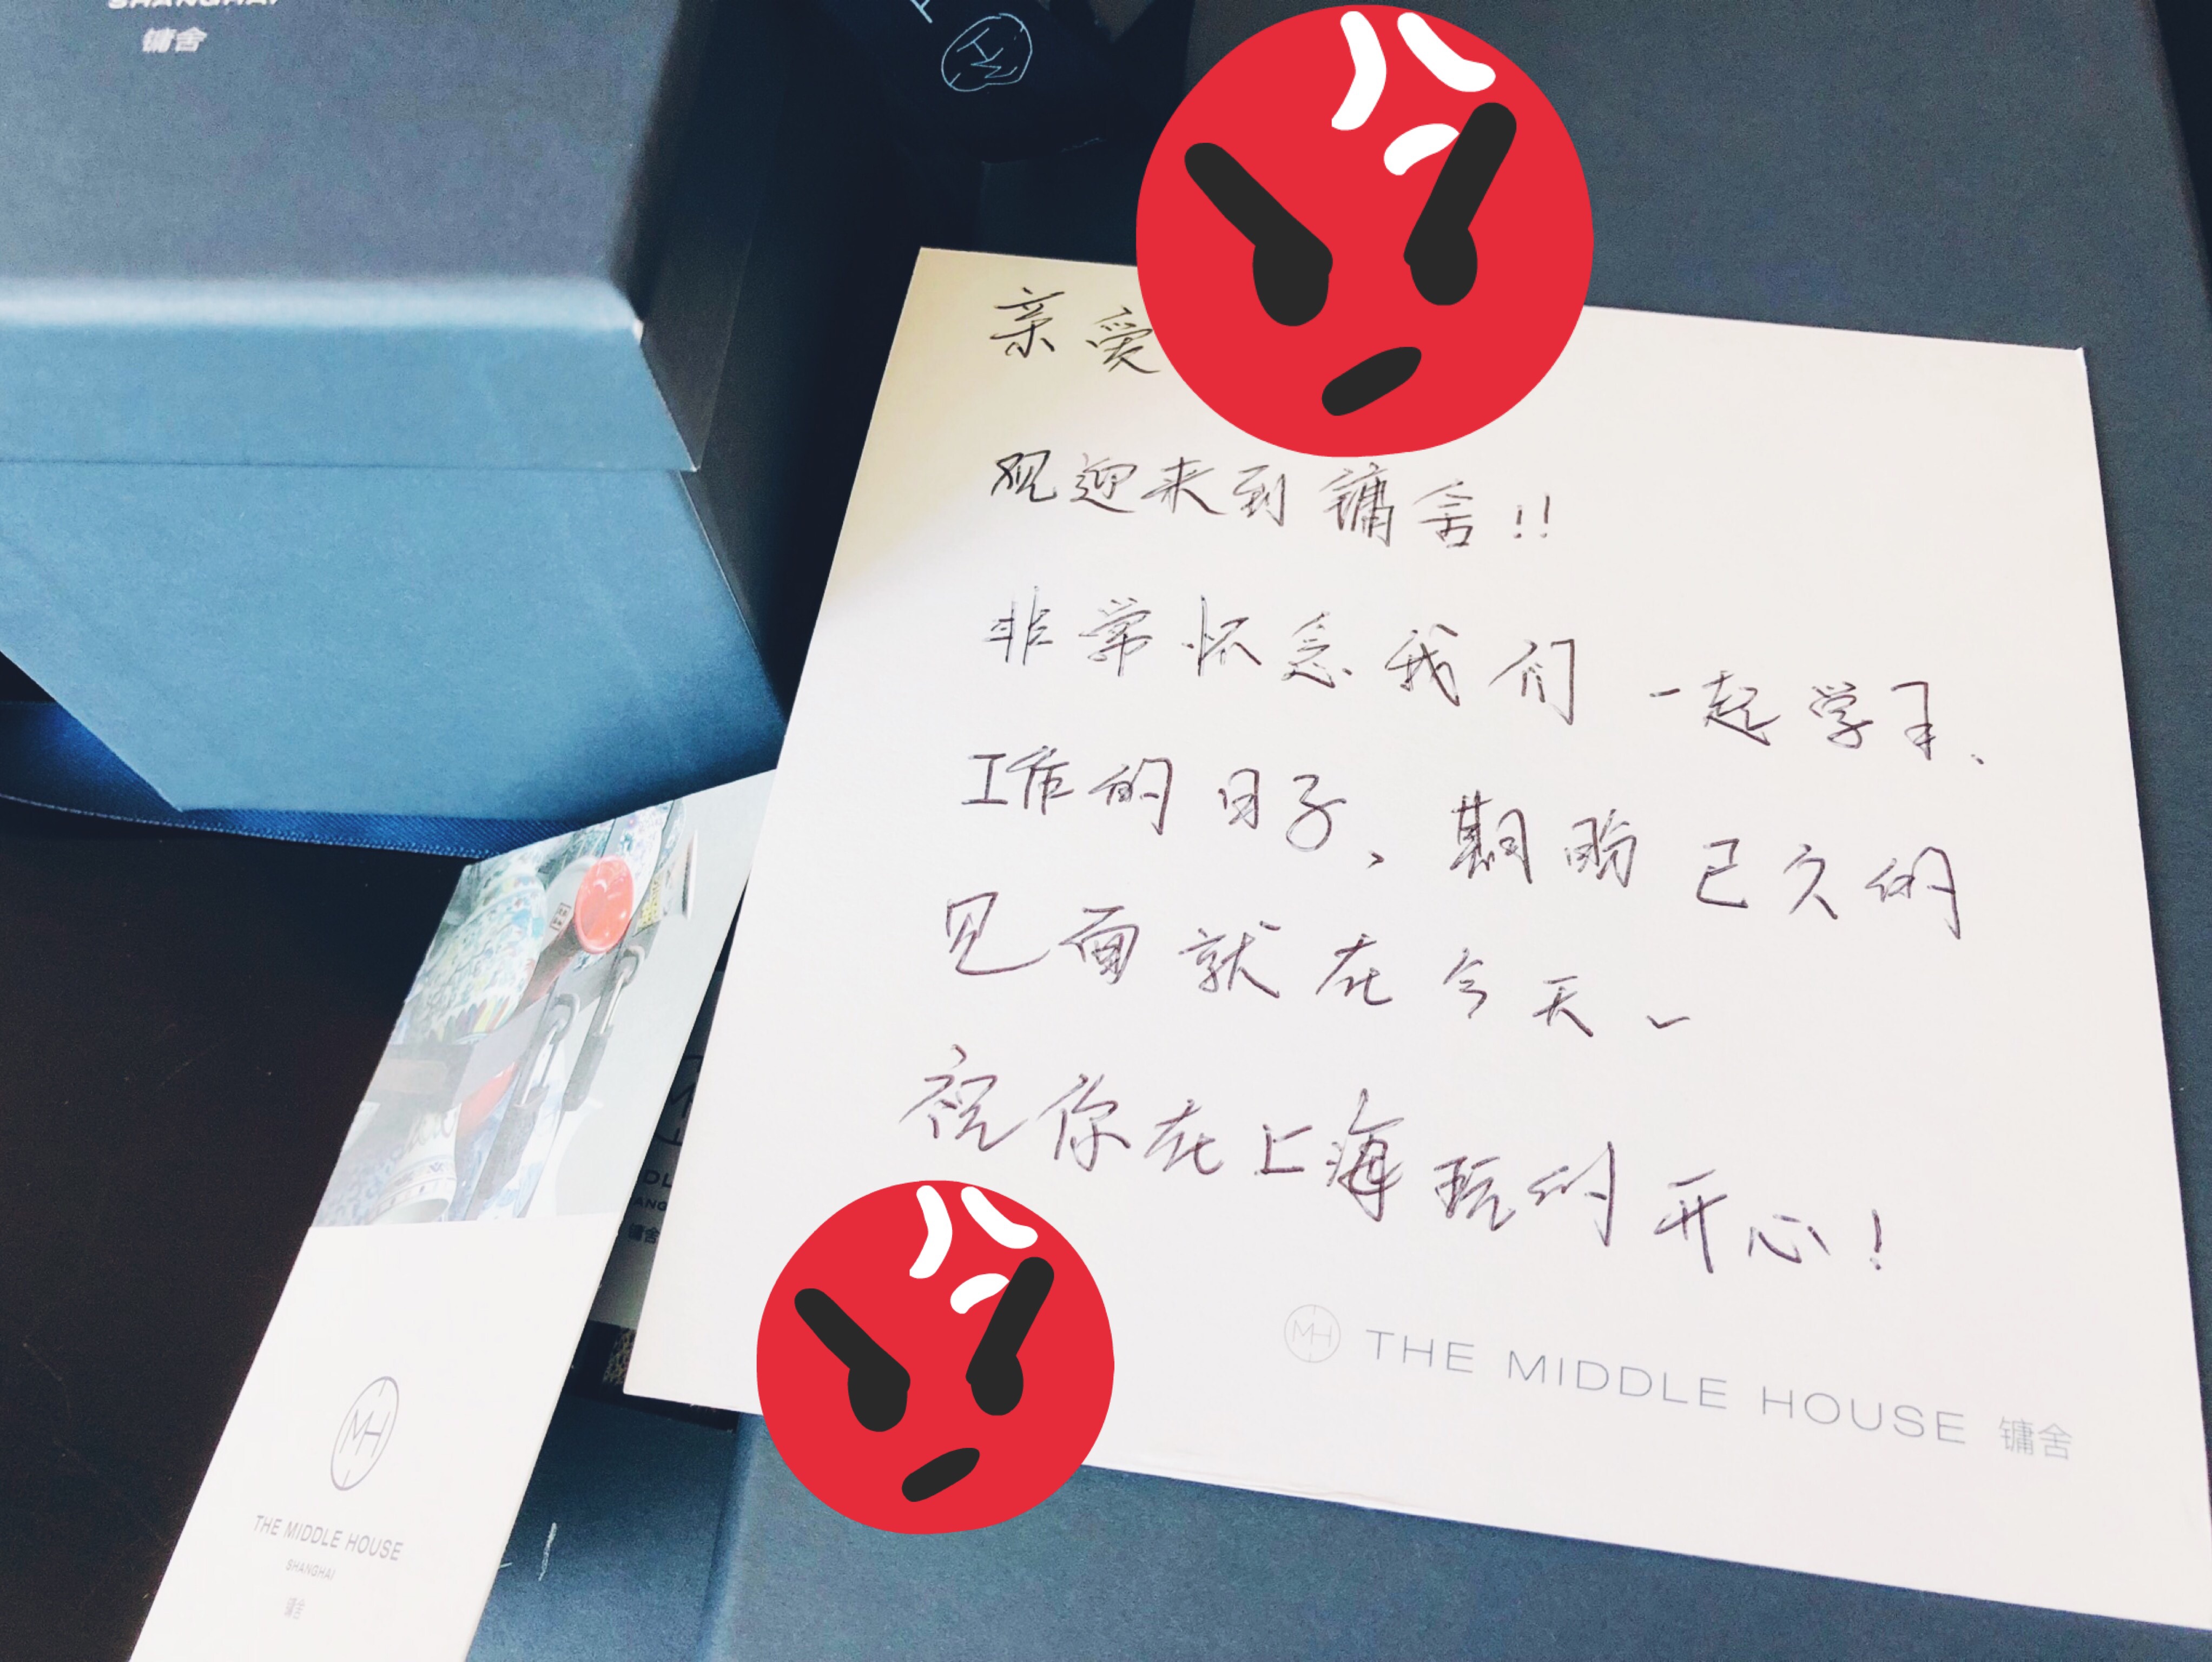 SHANGHAI
镛舍
亲爱
欢迎来到镛舍!!
非常怀念我们一起学习、
工作的日子,期盼已久的
见面就在今天~
祝你在上海玩的开心!
MH THE MIDDLE HOUSE 镛舍
MH
THE MIDDLE HOUSE
SHANGHAI
镛舍